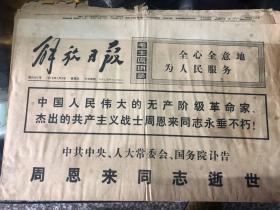 解放日报
毛主席语录
全心全意地
为人民服务
中国人民伟大的无产阶级革命家、
杰出的共产主义战士周恩来同志永垂不朽!
中共中央、人大常委会、国务院讣告
周恩来同志逝世